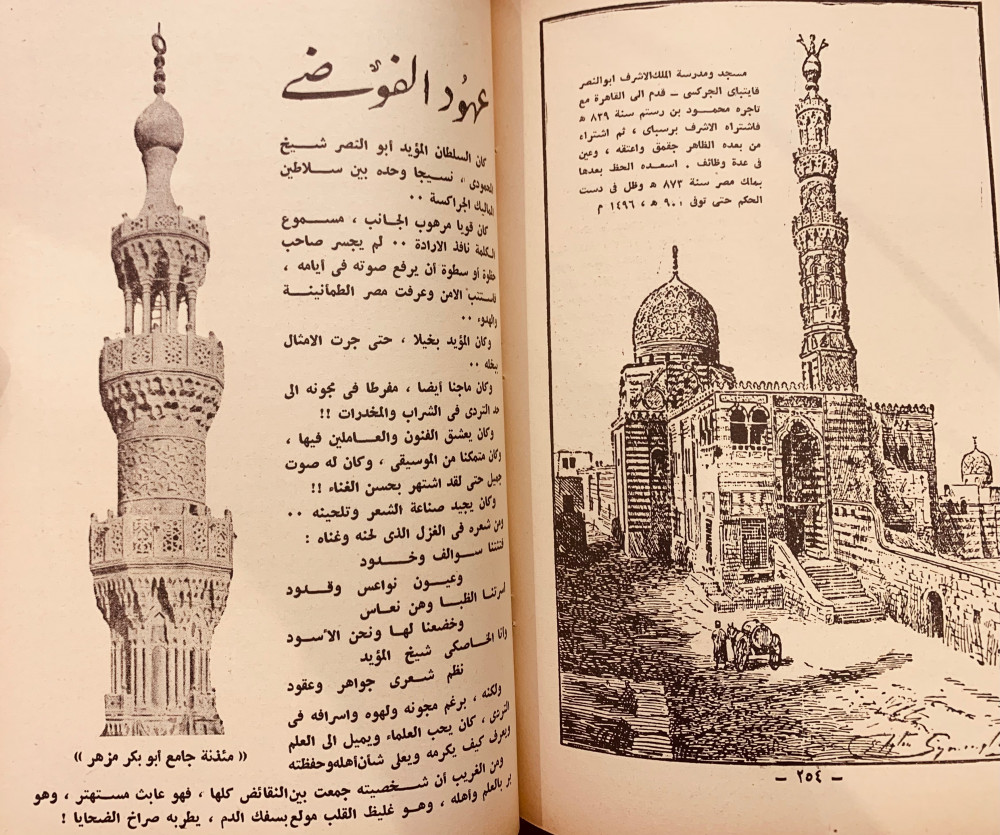 مسجد ومدرسة الملك الاشرف ابوالنصر
قايتباى الجركسى – قدم الى القاهرة مع
تاجره محمود بن رستم سنة ٨٣٩ ه
فاشتراه الاشرف برسباى ، ثم اشتراه
من بعده الظاهر جقمق واعتقه ، وعين
فى عدة وظائف . اسعده الحظ بعدها
بملك مصر سنة ٨٧٣ ه وظل فى دست
الحكم حتى توفى ٩٠١ ه ، ١٤٩٦ م
– ٢٥٤ –
عهود الفوضى
كان السلطان المؤيد أبو النصر شيخ
المحمودى ، نسيجا وحده بين سلاطين
المماليك الجراكسة ..
كان قويا مرهوب الجانب ، مسموع
الكلمة نافذ الارادة .. لم يجسر صاحب
حظوة أو سطوة أن يرفع صوته فى أيامه ،
فاستتب الامن وعرفت مصر الطمأنينة
والهدوء ..
وكان المؤيد بخيلا ، حتى جرت الامثال
ببخله ..
وكان ماجنا أيضا ، مفرطا فى مجونه الى
حد التردى فى الشراب والمخدرات !!
وكان يعشق الفنون والعاملين فيها ،
وكان متمكنا من الموسيقى ، وكان له صوت
جميل حتى لقد اشتهر بحسن الغناء !!
وكان يجيد صناعة الشعر وتلحينه ..
ومن شعره فى الغزل الذى لحنه وغناه :
فتنتنا سوالف وخدود
وعيون نواعس وقدود
أسرتنا الظبا وهن نعاس
وخضعنا لها ونحن الأسود
وأنا الخاصكى شيخ المؤيد
نظم شعرى جواهر وعقود
ولكنه ، برغم مجونه ولهوه واسرافه فى
التردى ، كان يحب العلماء ويميل الى العلم
ويعرف كيف يكرمه ويعلى شأن أهله وحفظته
ومن الغريب أن شخصيته جمعت بين النقائض كلها ، فهو عابث مستهتر ، وهو
بر بالعلم وأهله ، وهو غليظ القلب مولع بسفك الدم ، يطربه صراخ الضحايا !
« مئذنة جامع أبو بكر مزهر »